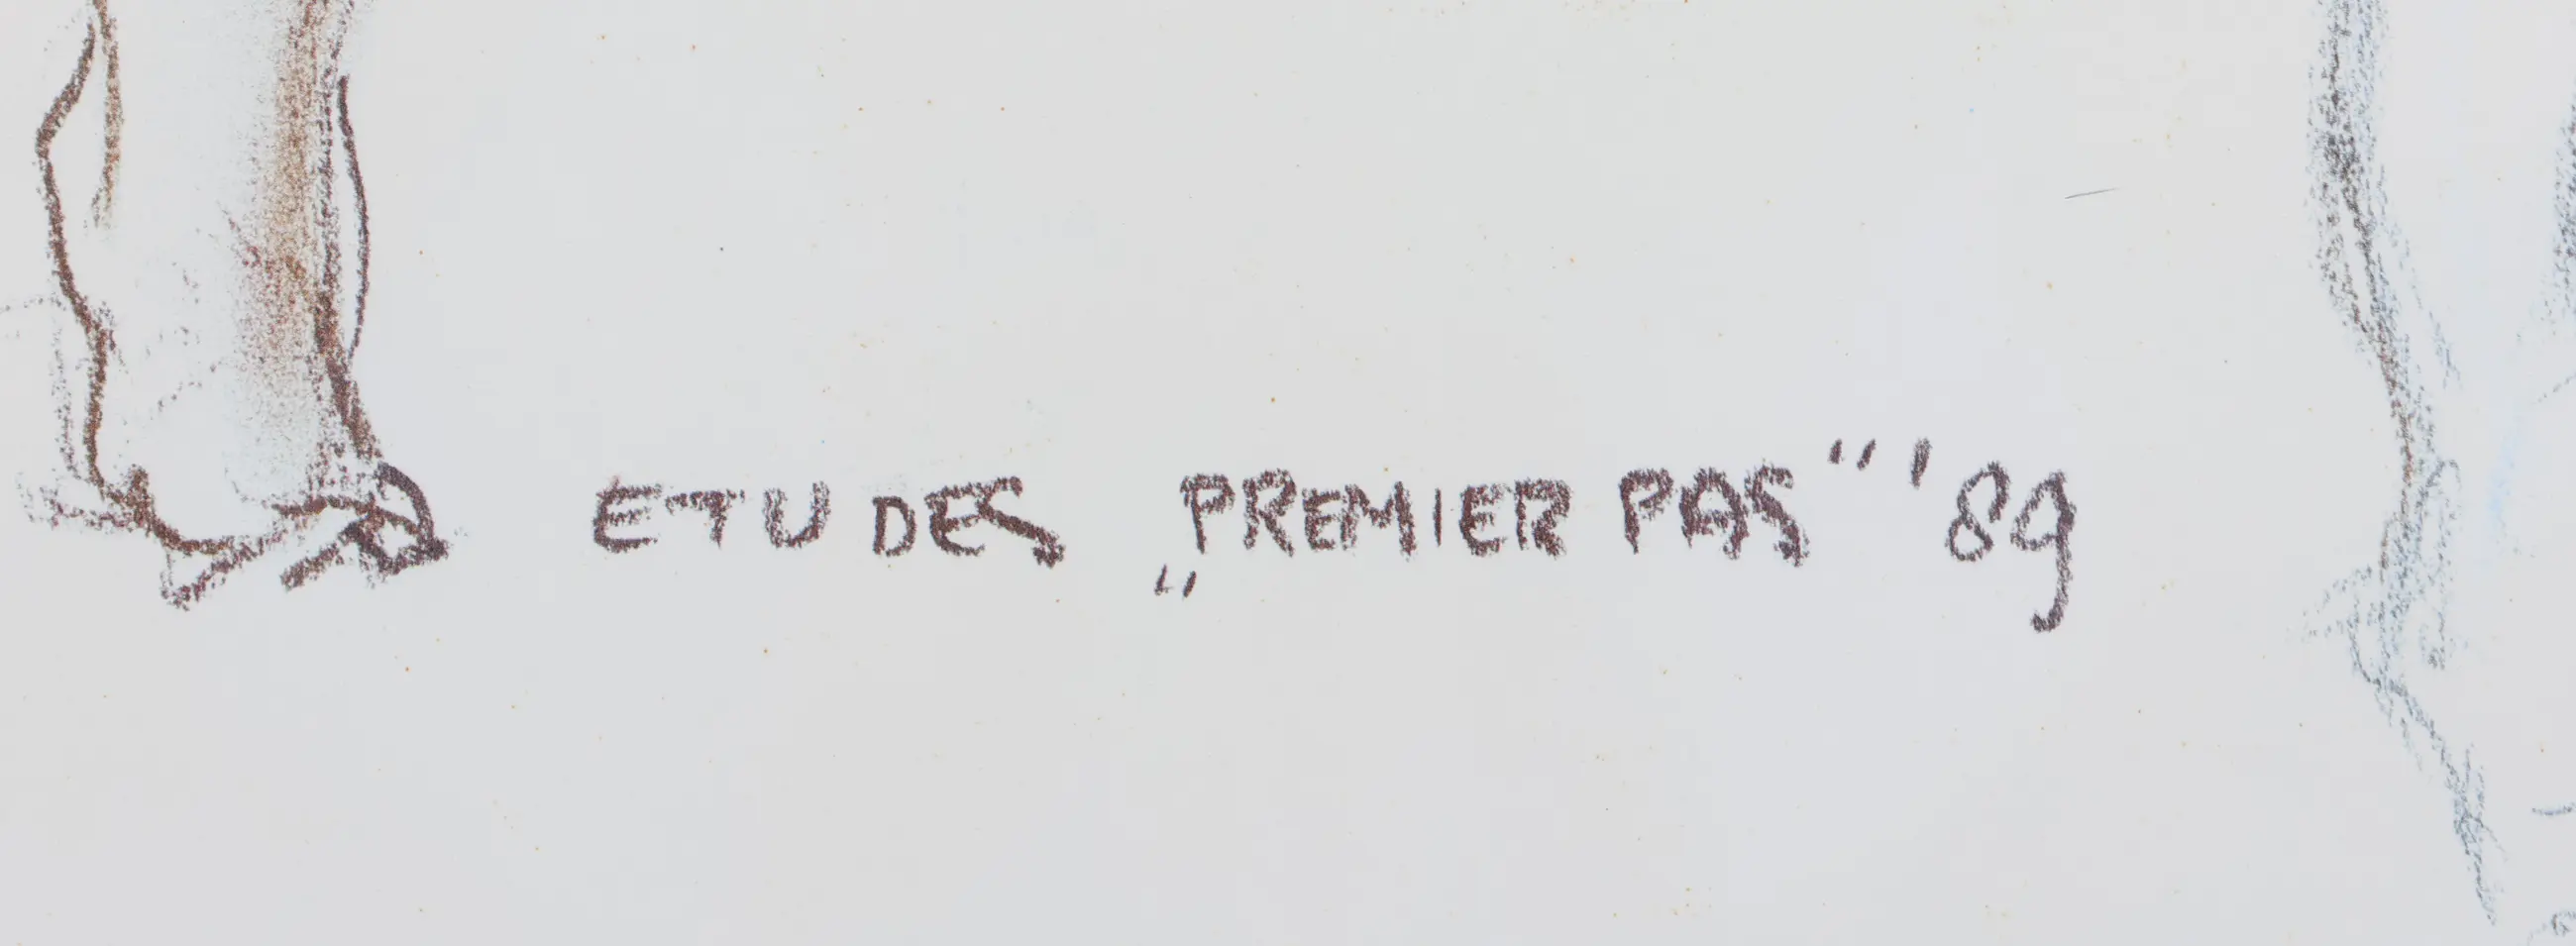 ETUDES „PREMIER PAS" '89